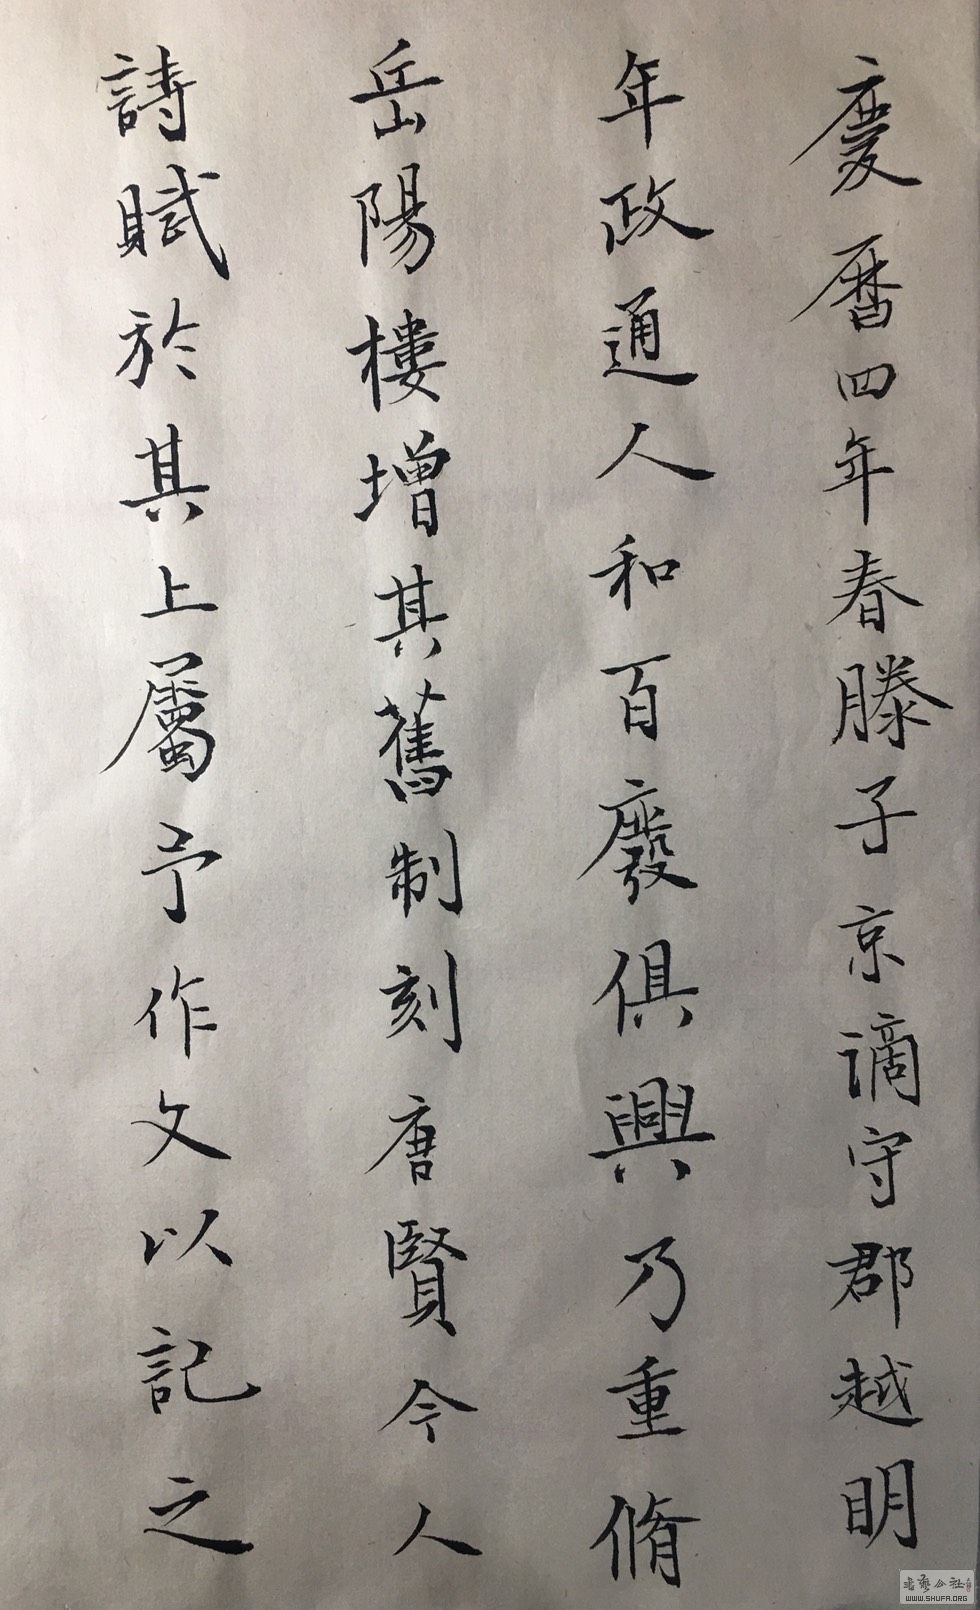 慶曆四年春滕子京謫守郡越明
年政通人和百廢俱興乃重脩
岳陽樓增其舊制刻唐賢今人
詩賦於其上屬予作文以記之
书艺公社
WWW.SHUFA.ORG